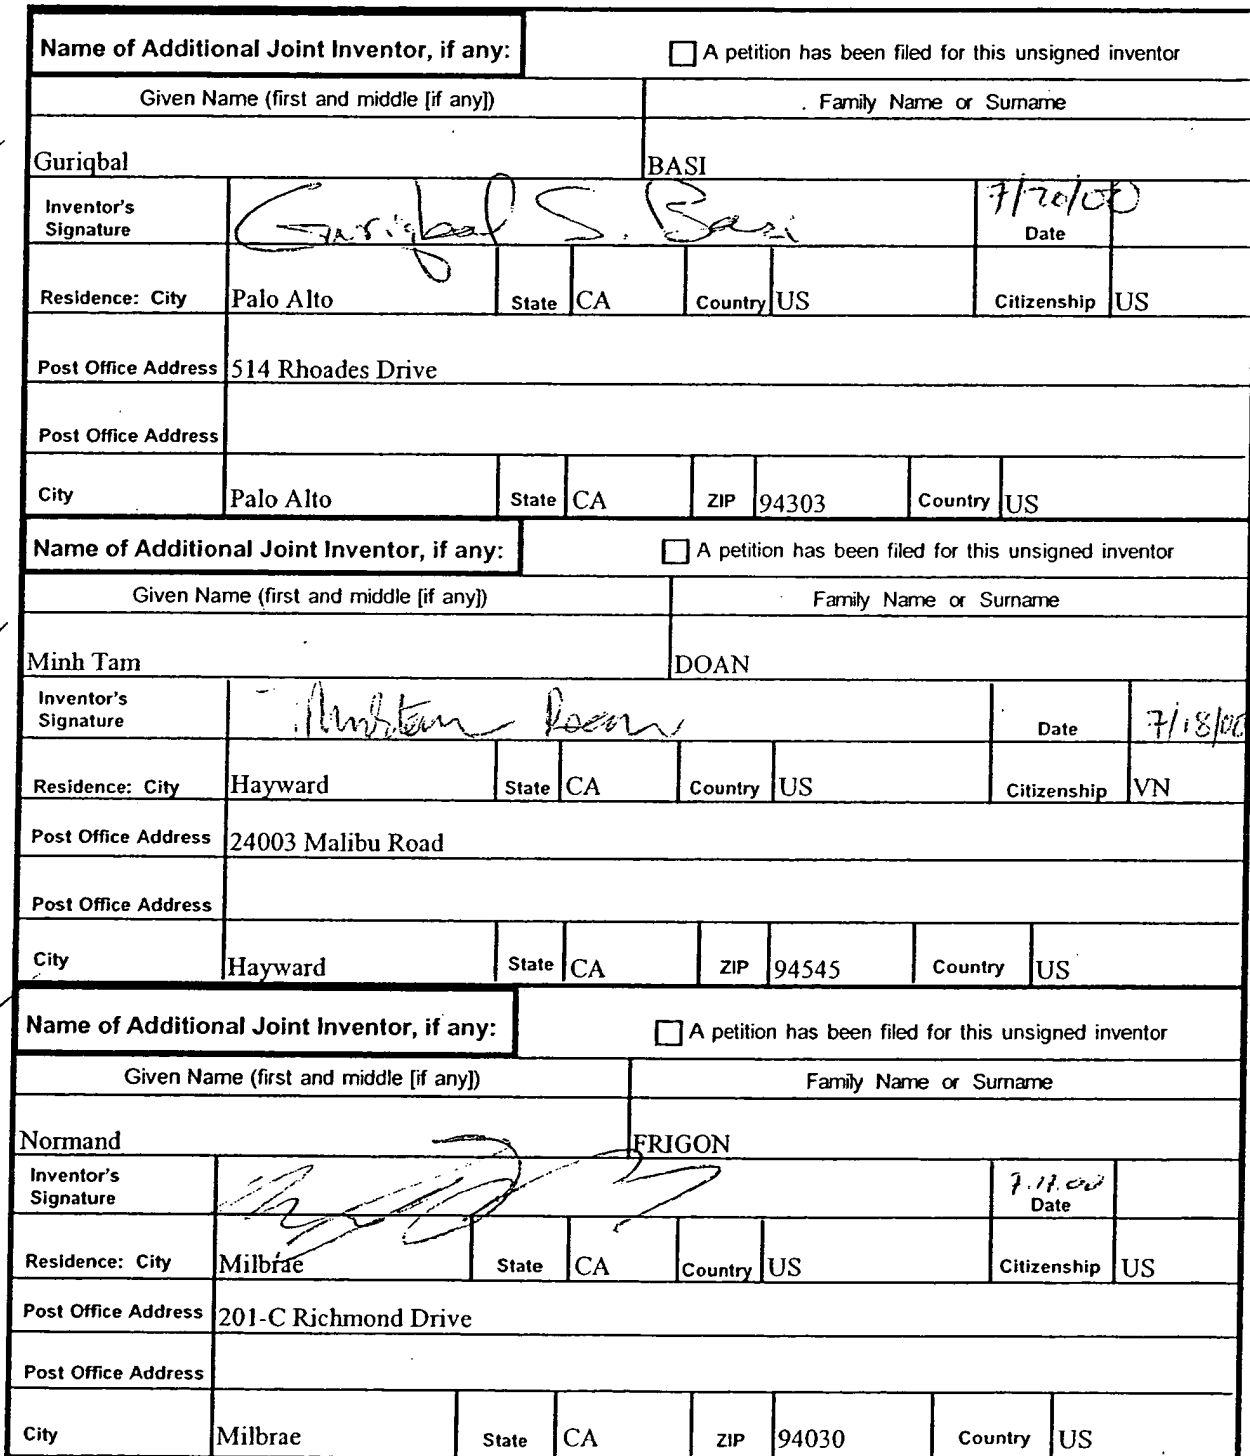 Name of Additional Joint Inventor, if any: A petition has been filed for this unsigned inventor
Given Name (first and middle [if any]) Family Name or Surname
Guriqbal BASI
Inventor's Signature Guriqbal S. Basi 7/20/00 Date
Residence: City Palo Alto State CA Country US Citizenship US
Post Office Address 514 Rhoades Drive
Post Office Address
City Palo Alto State CA ZIP 94303 Country US
Name of Additional Joint Inventor, if any: A petition has been filed for this unsigned inventor
Given Name (first and middle [if any]) Family Name or Surname
Minh Tam DOAN
Inventor's Signature Minhtam Doan Date 7/18/00
Residence: City Hayward State CA Country US Citizenship VN
Post Office Address 24003 Malibu Road
Post Office Address
City Hayward State CA ZIP 94545 Country US
Name of Additional Joint Inventor, if any: A petition has been filed for this unsigned inventor
Given Name (first and middle [if any]) Family Name or Surname
Normand FRIGON
Inventor's Signature Date
Residence: City Milbrae State CA Country US Citizenship US
Post Office Address 201-C Richmond Drive
Post Office Address
City Milbrae State CA ZIP 94030 Country US